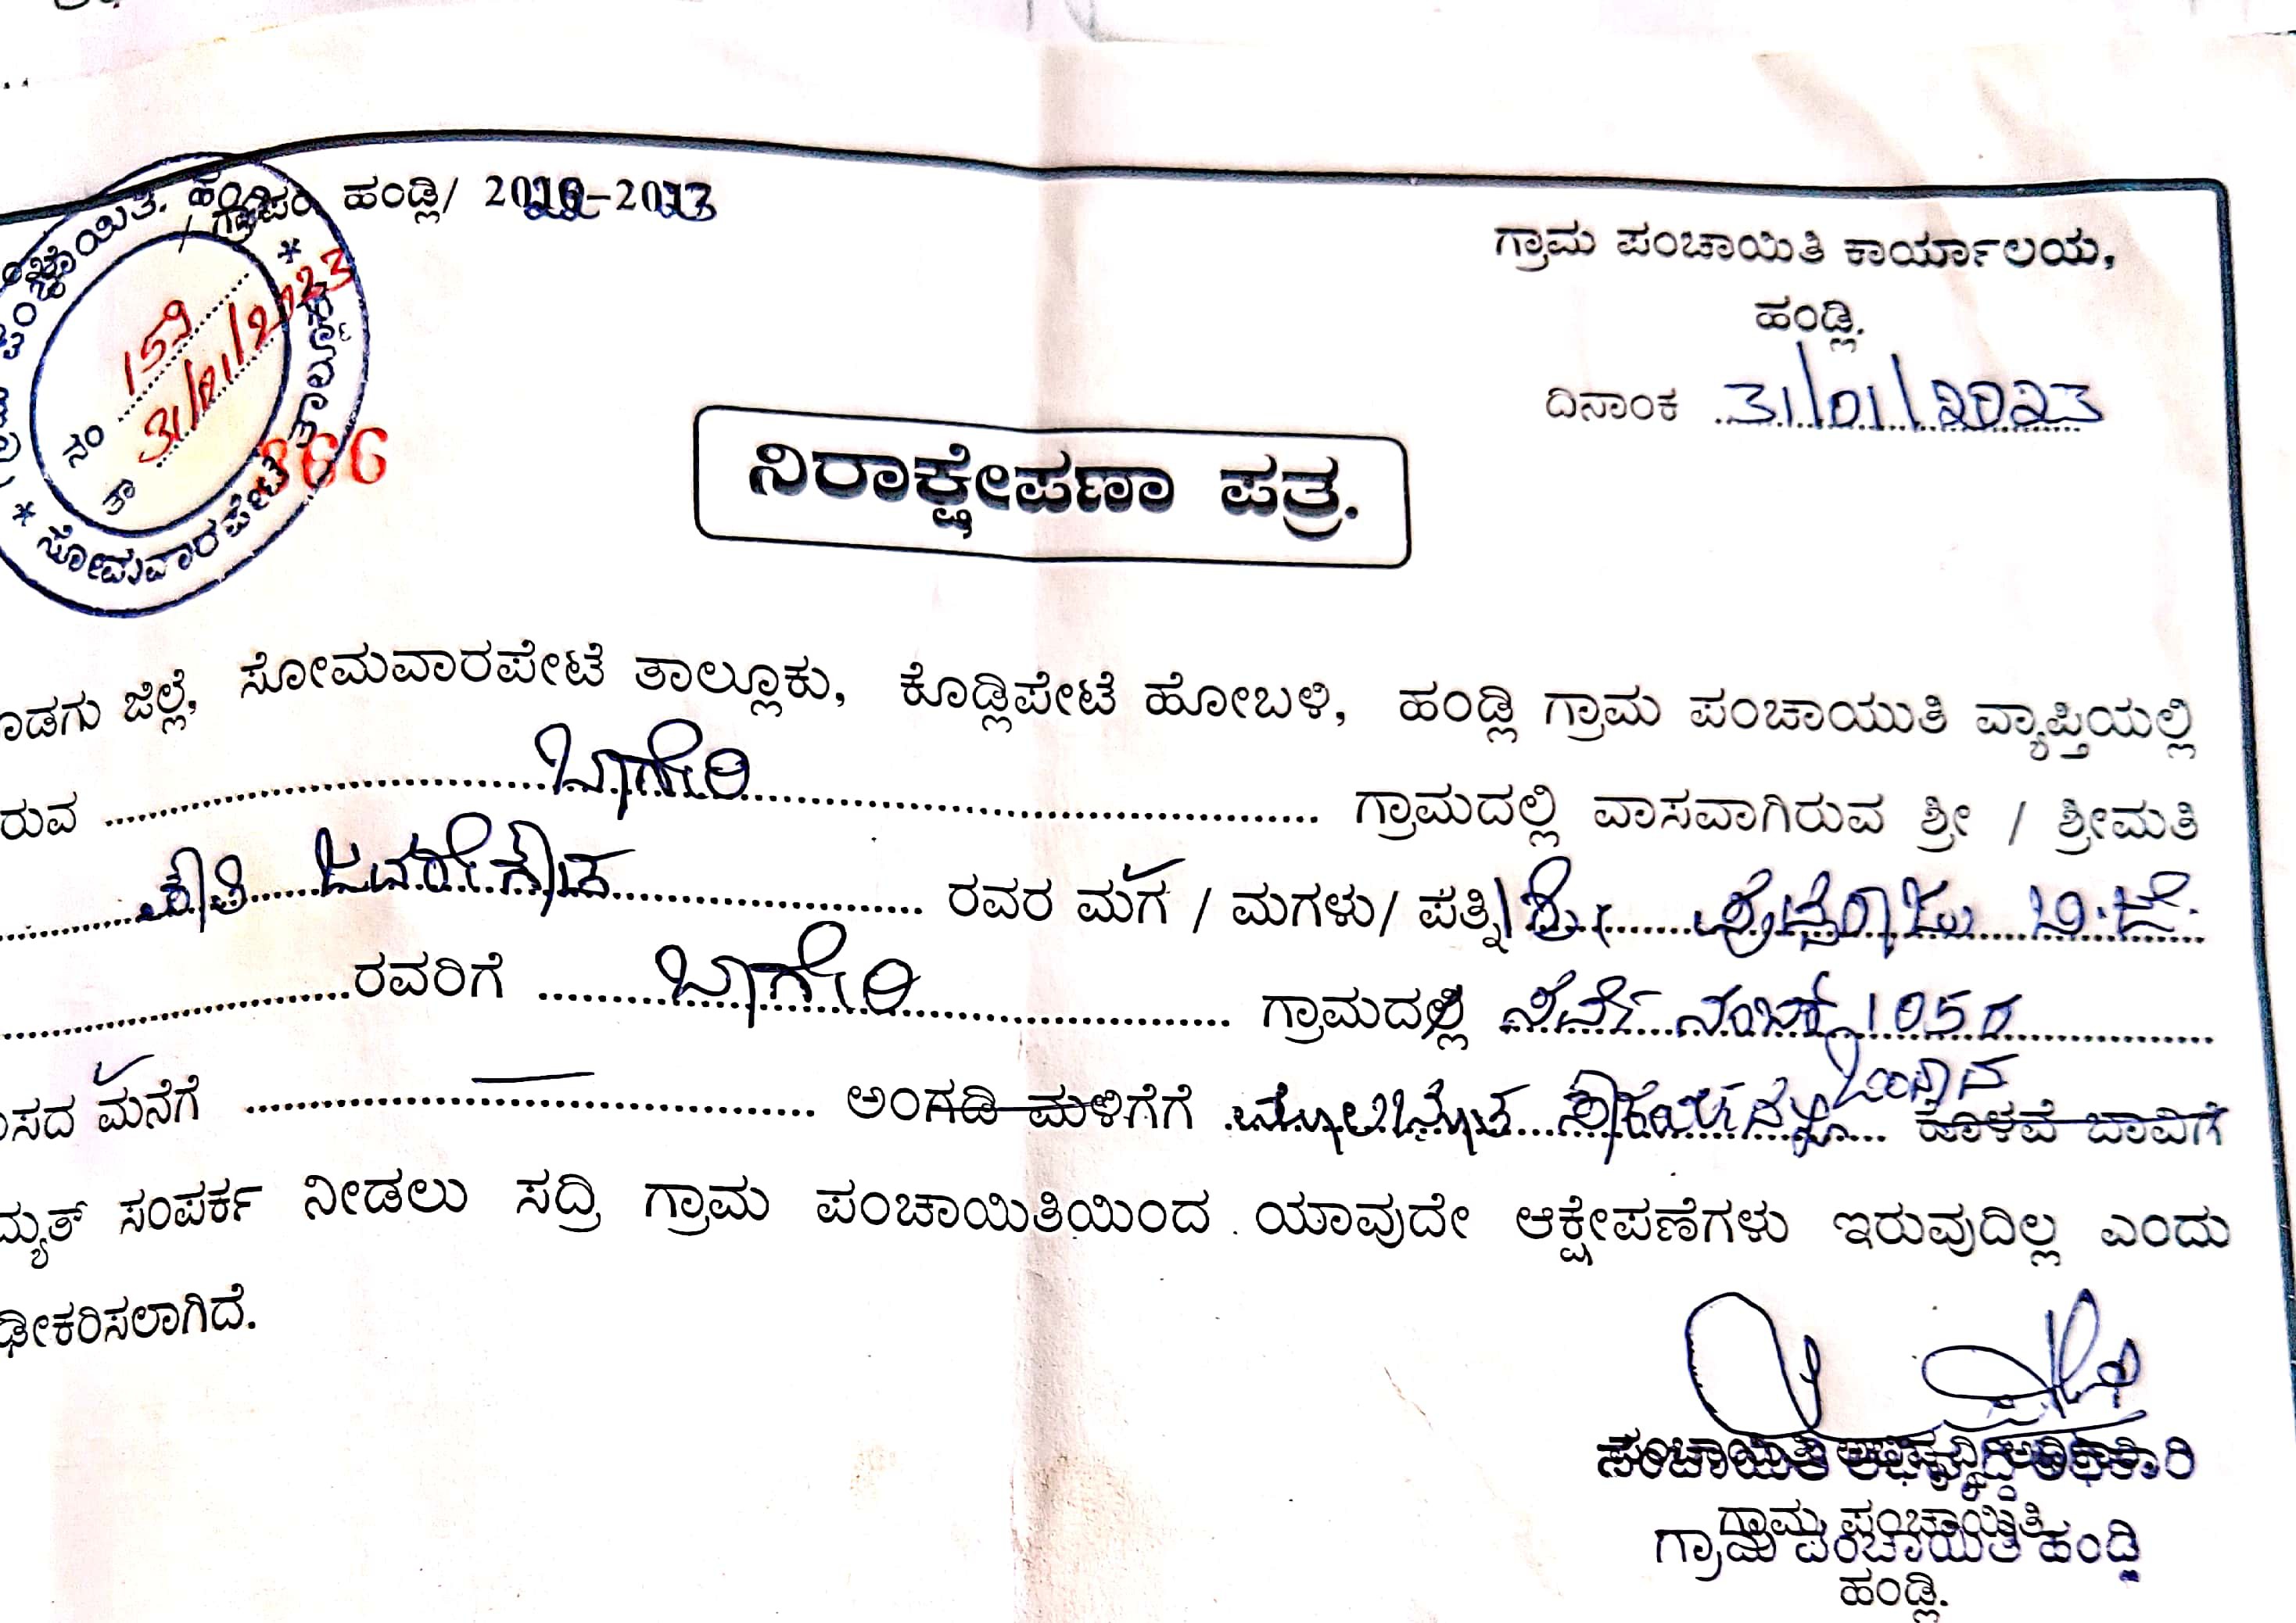 ಗ್ರಾ.ಪಂ. ಹಂಡ್ಲಿ/ 2022-2023
ಗ್ರಾಮ ಪಂಚಾಯಿತಿ ಕಾರ್ಯಾಲಯ,
ಹಂಡ್ಲಿ.
ದಿನಾಂಕ 31/01/2023
ಪಂಚಾಯಿತಿ. ಹಂಡ್ಲಿ * ತಾಲ್ಲೂಕು ಸೋಮವಾರಪೇಟೆ *
ನಂ
ತಾ 31/01/2023
366
ನಿರಾಕ್ಷೇಪಣಾ ಪತ್ರ.
ೊಡಗು ಜಿಲ್ಲೆ, ಸೋಮವಾರಪೇಟೆ ತಾಲ್ಲೂಕು, ಕೊಡ್ಲಿಪೇಟೆ ಹೋಬಳಿ, ಹಂಡ್ಲಿ ಗ್ರಾಮ ಪಂಚಾಯುತಿ ವ್ಯಾಪ್ತಿಯಲ್ಲಿ
ರುವ ಬಾಗೇರಿ ಗ್ರಾಮದಲ್ಲಿ ವಾಸವಾಗಿರುವ ಶ್ರೀ / ಶ್ರೀಮತಿ
ಜವರೇಗೌಡ ರವರ ಮಗ / ಮಗಳು/ ಪತ್ನಿ ಶ್ರೀ ಬಿ.ಜೆ.
ರವರಿಗೆ ಬಾಗೇರಿ ಗ್ರಾಮದಲ್ಲಿ ಸರ್ವೆ ನಂಬರ್
ಾಸದ ಮನೆಗೆ — ಅಂಗಡಿ ಮಳಿಗೆಗೆ ಮೂಲಭೂತ ಸೌಕರ್ಯ ಹೊಳವೆ ಬಾವಿಗೆ
ದ್ಯುತ್ ಸಂಪರ್ಕ ನೀಡಲು ಸದ್ರಿ ಗ್ರಾಮ ಪಂಚಾಯಿತಿಯಿಂದ ಯಾವುದೇ ಆಕ್ಷೇಪಣೆಗಳು ಇರುವುದಿಲ್ಲ ಎಂದು
ಢೀಕರಿಸಲಾಗಿದೆ.
ಪಂಚಾಯಿತಿ ಅಭಿವೃದ್ಧಿ ಅಧಿಕಾರಿ
ಗ್ರಾಮ ಪಂಚಾಯಿತಿ ಹಂಡ್ಲಿ
ಹಂಡ್ಲಿ.